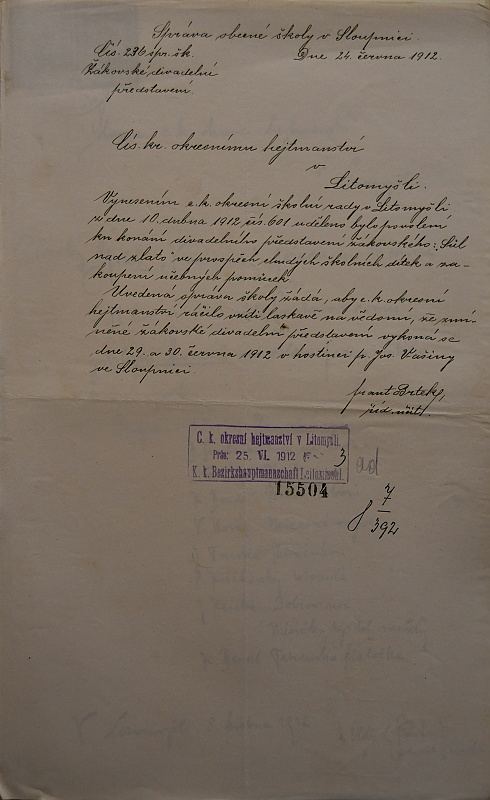 Správa obecné školy v Sloupnici.
Čís. 236 špr. šk. Dne 24. června 1912.
Žákovské divadelní
představení.
Cís. kr. okresnímu hejtmanství
v
Litomyšli.
Vynesením c. k. okresní školní rady v Litomyšli
ze dne 10. dubna 1912 čís. 601 uděleno bylo povolení
ku konání divadelního představení žákovského: „Sůl
nad zlato" ve prospěch chudých školních dítek a za-
koupení učebných pomůcek.
Uvedená správa školy žádá, aby c. k. okresní
hejtmanství ráčilo vzíti laskavě na vědomí, že zmí-
něné žákovské divadelní představení vykoná se
dne 29. a 30. června 1912 v hostinci p. Jos. Vašiny
ve Sloupnici.
říd. učit.
C. k. okresní hejtmanství v Litomyšli.
Präs: 25. VI. 1912 3
K. k. Bezirkshauptmannschaft Leitomischl.
ad
15504
7
392